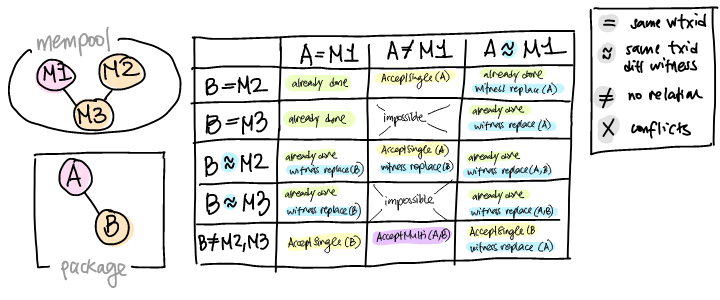 mempool
M1
M2
M3
A
B
package
A=M1
A≠M1
A≈M1
B=M2
already done
AcceptSingle(A)
already done
witness replace(A)
B=M3
already done
impossible
already done
witness replace(A)
B≈M2
already done
witness replace(B)
AcceptSingle(A)
witness replace(B)
already done
witness replace(A,B)
B≈M3
already done
witness replace(B)
impossible
already done
witness replace(A,B)
B≠M2,M3
AcceptSingle(B)
AcceptMulti(A,B)
AcceptSingle(B
witness replace(A)
= same wtxid
≈ same txid
diff witness
≠ no relation
X conflicts